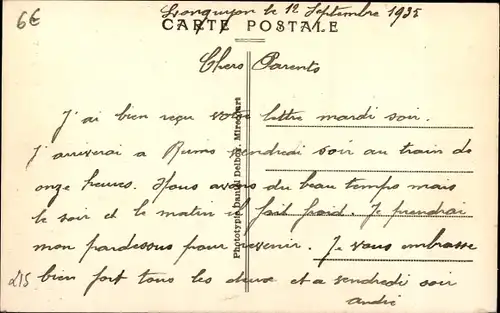 6€
Longuyon le 12 Septembre 1935
CARTE POSTALE
Chers Parents
J'ai bien reçu votre lettre mardi soir.
J'arriverai a Reims vendredi soir au train de
onze heures. Nous avons du beau temps mais
le soir et le matin il fait froid. Je prendrai
mon pardessus pour revenir. Je vous embrasse
bien fort tous les deux et a vendredi soir
andré
Phototypie Daniel Delboy, Mirecourt
215